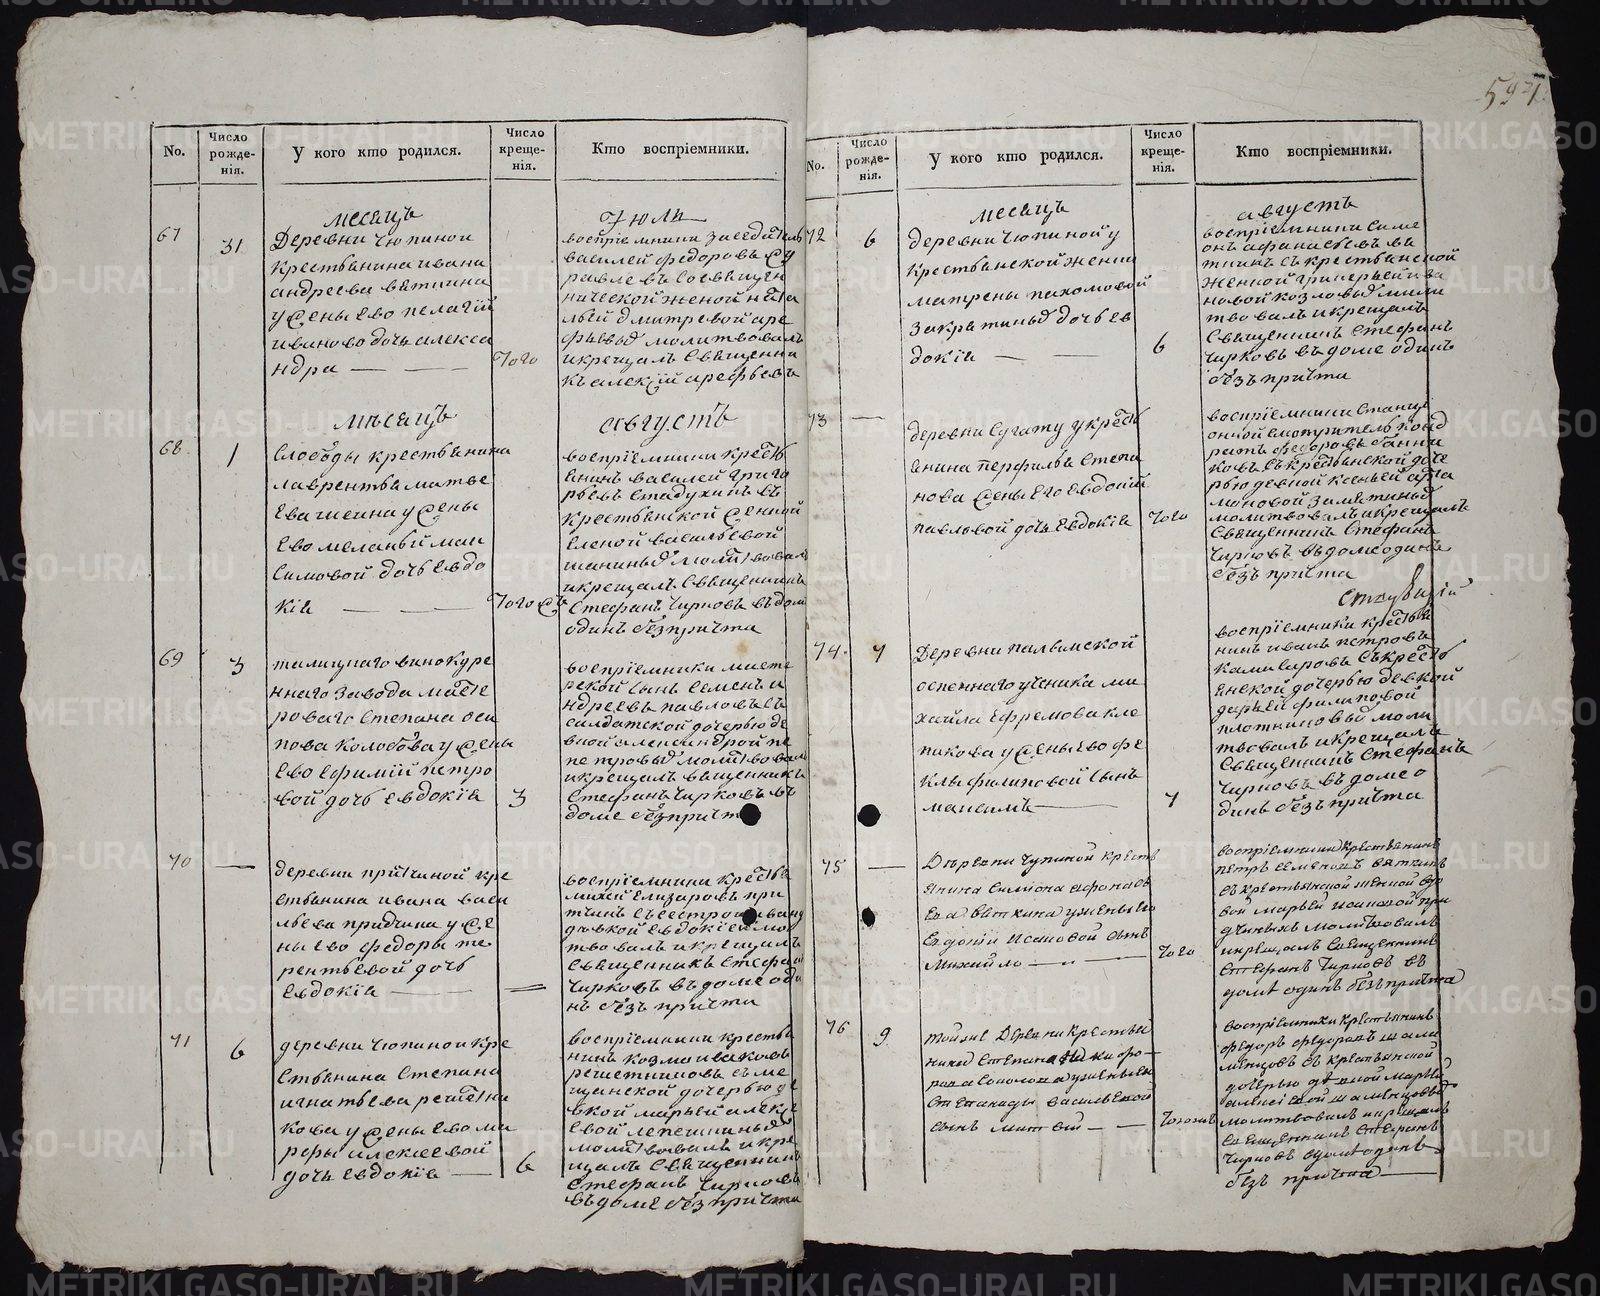 597
No.
Число рожденія.
У кого кто родился.
Число крещенія.
Кто воспріемники.
месяцъ
Іюли
67
31
Деревни Чюпиной
крестьянина ивана
андреева вяткина
у жены ево пелагіи
ивановой дочь алекса
ндра
того
воспріемники заседатель
василей федоровъ
равлевъ
нической женой ната
льей дмитревой аре
фьевыхъ молитвовалъ
и крещалъ священни
къ алексій арефьевъ
мѣсяцъ
августъ
68
1
Слободы крестьянина
лаврентья матве
ева у жены
ево меланьи мак
симовой дочь евдо
кія
того жъ
воспріемники кресть
янинъ василей григо
рьевъ стадухинъ съ
крестьянской женкой
еленой васильевой
молитвовалъ
и крещалъ священникъ
Стефанъ Чирковъ въ доме
одинъ безъ причта
69
3
талицкаго винокуре
ннаго завода масте
роваго степана оси
пова колобова у жены
ево ефиміи петро
вой дочь евдокія
3
воспріемники масте
рской сынъ семенъ а
ндреевъ павловъ съ
салдатской дочерью де
вкой александрой пе
петровыхъ молитвовалъ
и крещалъ священникъ
Стефанъ Чирковъ въ
доме безъ причта
70
деревни притчиной кре
стьянина ивана васи
льева притчина у же
ны ево федоры те
рентьевой дочь
евдокія
воспріемники кресть
михей елизаровъ при
тчинъ съ сестрой
девкой евдокіей мо
твовалъ и крещалъ
священникъ Стефан
Чирковъ въ доме оди
нъ безъ причта
71
6
деревни Чюпиной кре
стьянина степана
игнатьева решетни
кова у жены ево ма
рфы алексеевой
дочь евдокія
6
воспріемники крестья
нинъ козма иваковъ
решетниковъ съ ме
щанской дочерью де
вкой марьей алексе
евой лепешкиныхъ
молитвовалъ и кре
щалъ священникъ
Стефанъ Чирковъ
въ доме безъ причта
No.
Число рожденія.
У кого кто родился.
Число крещенія.
Кто воспріемники.
месяцъ
августъ
72
6
деревни Чюпиной у
крестьянской женки
матрены пахомовой
закрятиныхъ дочь ев
докія
6
воспріемники симе
онъ афанасьевъ вя
ткинъ съ крестьянской
женкой гликерьей ива
новой козловыхъ моли
твовалъ и крещалъ
священникъ Стефанъ
Чирковъ въ доме одинъ
безъ причта
73
деревни Сугату у кресть
янина перфилья степа
нова жены его евдокіи
павловой дочь евдокія
того
воспріемники станці
онной смотритель
федоровъ
ковъ съ крестьянской доче
рью девкой ксеньей арта
моновой замятиныхъ
молитвовалъ и крещалъ
священникъ Стефанъ
Чирковъ въ доме одинъ
безъ причта
74.
7
Деревни пальмской
оспеннаго ученика ми
хайла ефремова кле
пикова у жены ево фе
клы филиповой сынъ
максимъ
7
воспріемники крестья
нинъ иванъ петровъ
съ кресть
янской дочерью девкой
дарьей филиповой
плотниковыхъ моли
твовалъ и крещалъ
священникъ Стефанъ
Чирковъ въ доме о
динъ безъ причта
75
Деревни Чупиной кресть
янина симіона афонась
ева вяткина у жены ево
евдокіи исаковой сынъ
Михайло
того
воспріемники крестьянинъ
петръ семеновъ вяткинъ
съ крестьянской женкой
вой марьей исаковой при
дчиныхъ молитвовалъ
и крещалъ священникъ
Стефанъ Чирковъ въ
доме одинъ безъ причта
76
9
тойже Деревни крестья
нина степана никифо
рова соколова у жены ево
степаниды васильевой
сынъ матвей
того жъ
воспріемники крестьянинъ
федоръ федоровъ шала
мѣнцовъ съ крестьянской
дочерью девкой марьей
алексіевой шаламенцовыхъ
молитвовалъ и крещалъ
священникъ Стефанъ
Чирковъ въ доме одинъ
безъ причта
METRIKI.GASO-URAL.RU